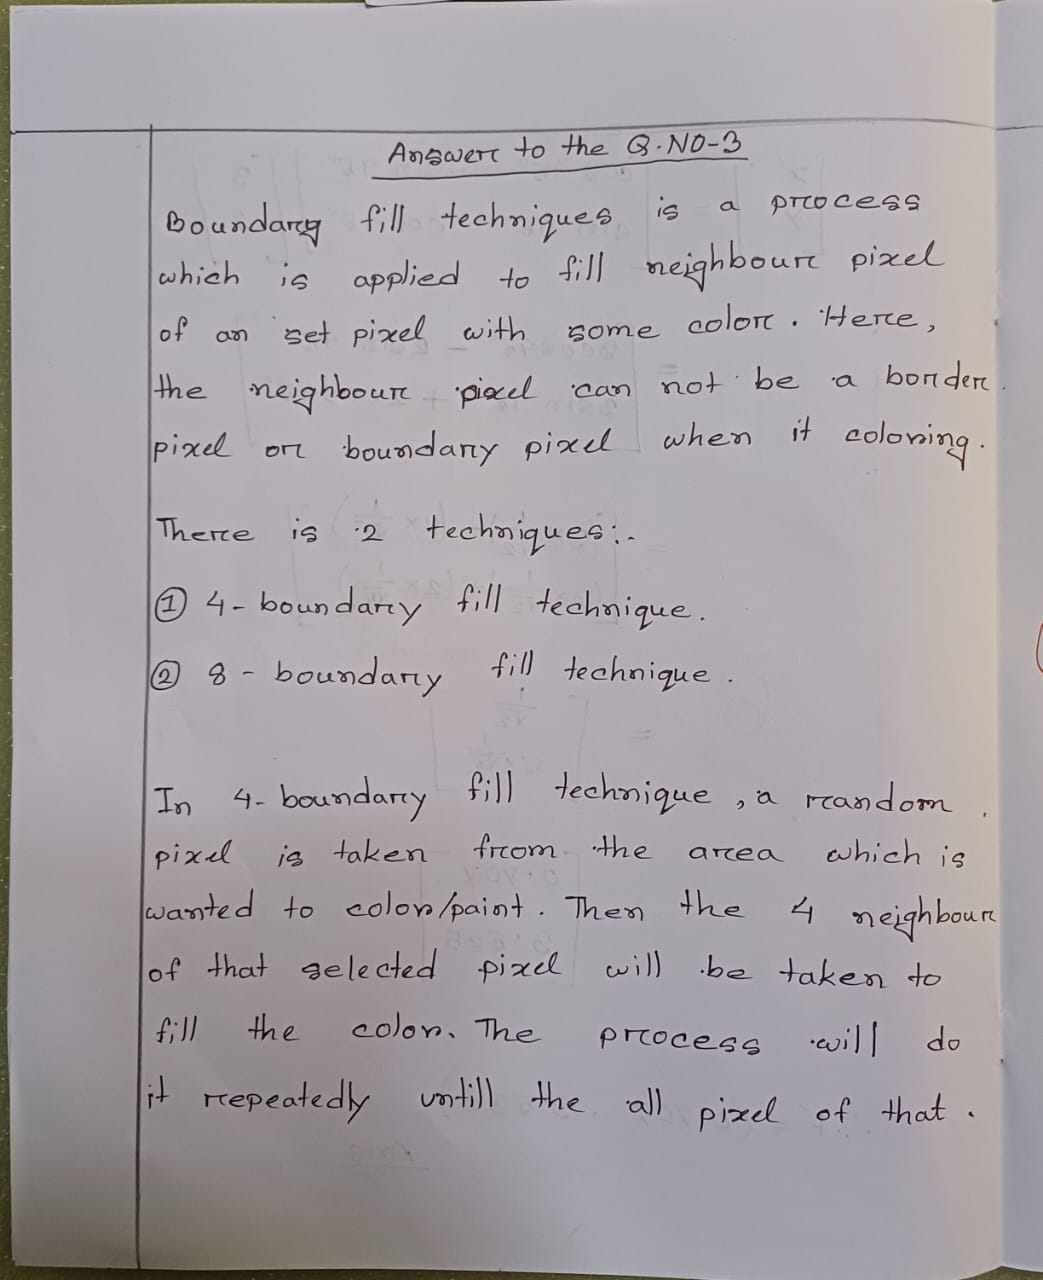 Answer to the Q.NO-3
Boundary fill techniques is a process
which is applied to fill neighbour pixel
of an set pixel with some color. Here,
the neighbour pixel can not be a border
pixel or boundary pixel when it coloring.
There is 2 techniques:-
① 4-boundary fill technique.
② 8-boundary fill technique.
In 4-boundary fill technique, a random
pixel is taken from the area which is
wanted to color/paint. Then the 4 neighbour
of that selected pixel will be taken to
fill the color. The process will do
it repeatedly untill the all pixel of that.